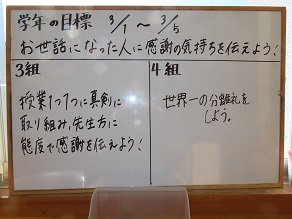 学年の目標 3/1～3/5
お世話になった人に感謝の気持ちを伝えよう！
3組
授業1つ1つに真剣に
取り組み、先生方に
態度で感謝を伝えよう！
4組
世界一の分離礼を
しよう。